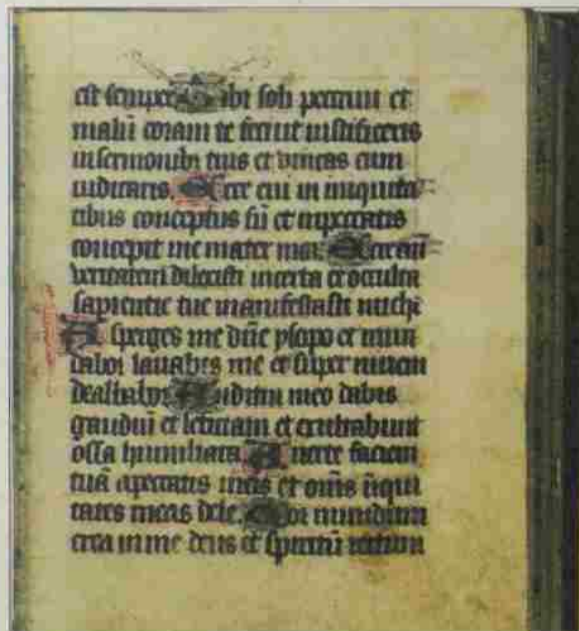 est semper Tibi soli peccaui et
malū coram te feci ut iustificeris
in sermonibꝯ tuis et vincas cum
iudicaris. Ecce eni in iniquita
tibus conceptus sū et in peccatis
concepit me mater mea. Ecce eni
veritatem dilexisti incerta et occulta
sapientie tue manifestasti michi
Asperges me dn̄e ysopo et mun
dabor lauabis me et super niuem
dealbabor Auditui meo dabis
gaudiū et leticiam et exultabunt
ossa humiliata. Auerte faciem
tuā a peccatis meis et om̄s iniqui
tates meas dele. Cor mundum
crea in me deus et spiritū rectum